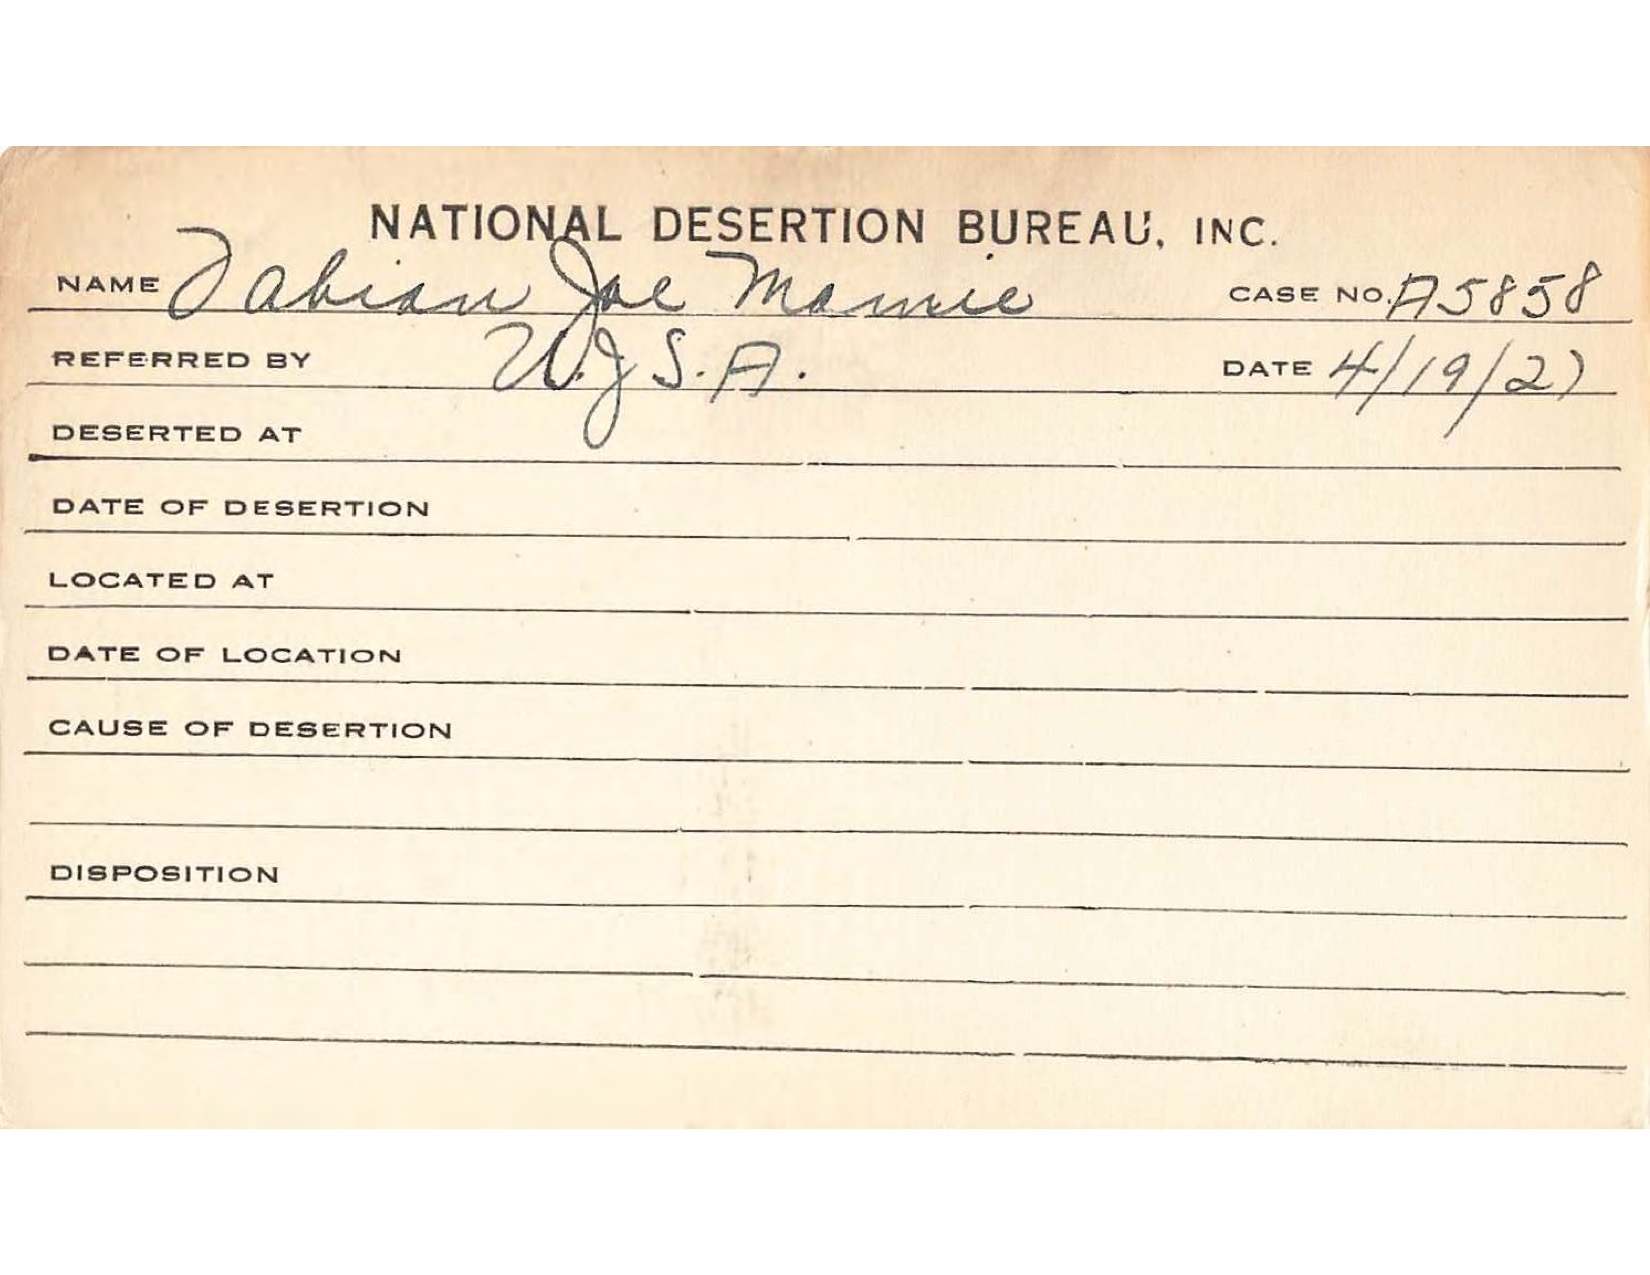 NATIONAL DESERTION BUREAU, INC.
NAME Fabian Joe Mamie CASE NO. A5858
REFERRED BY U.J.S.A. DATE 4/19/27
DESERTED AT
DATE OF DESERTION
LOCATED AT
DATE OF LOCATION
CAUSE OF DESERTION
DISPOSITION